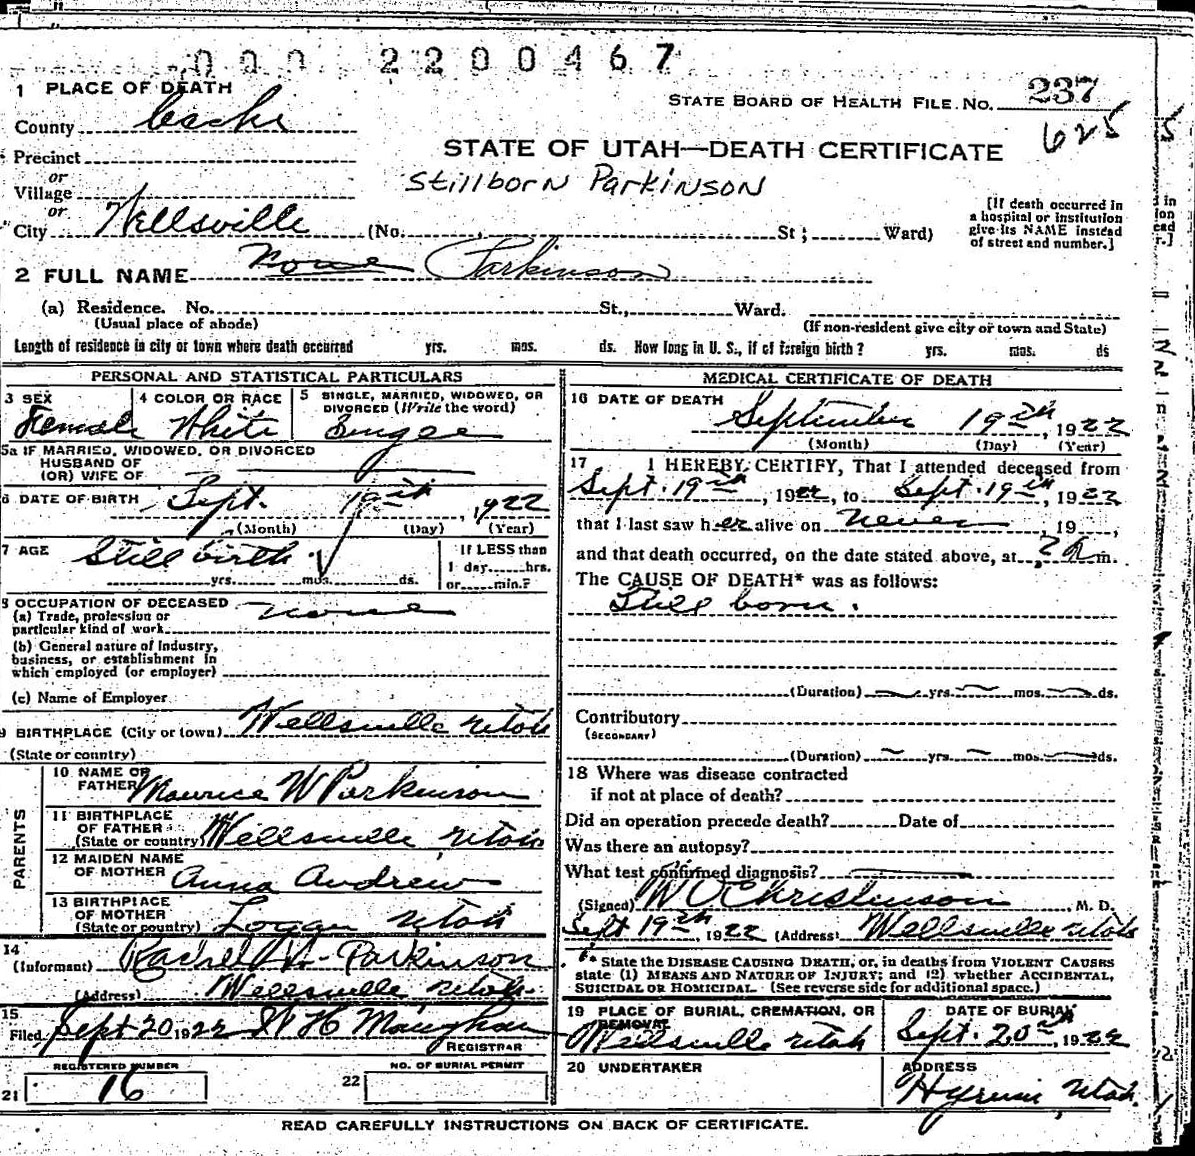 000 2200467
1 PLACE OF DEATH
STATE BOARD OF HEALTH FILE No. 237
County Cache
625
Precinct
STATE OF UTAH—DEATH CERTIFICATE
or
Stillborn Parkinson
Village
or
City Wellsville (No. , St; Ward)
[If death occurred in
a hospital or institution
give its NAME instead
of street and number.]
2 FULL NAME None Parkinson
(a) Residence. No. St., Ward.
(Usual place of abode) (If non-resident give city or town and State)
Length of residence in city or town where death occurred yrs. mos. ds. How long in U. S., if of foreign birth? yrs. mos. ds
PERSONAL AND STATISTICAL PARTICULARS
3 SEX 4 COLOR OR RACE 5 SINGLE, MARRIED, WIDOWED, OR
DIVORCED (Write the word)
Female White Single
5a IF MARRIED, WIDOWED, OR DIVORCED
HUSBAND OF
(OR) WIFE OF
6 DATE OF BIRTH Sept. 19th, 1922
(Month) (Day) (Year)
7 AGE Still birth
If LESS than
1 day hrs.
yrs. mos. ds. or min.?
8 OCCUPATION OF DECEASED none
(a) Trade, profession or
particular kind of work
(b) General nature of Industry,
business, or establishment in
which employed (or employer)
(c) Name of Employer
9 BIRTHPLACE (City or town) Wellsville Utah
(State or country)
PARENTS
10 NAME OF
FATHER Maurice W Parkinson
11 BIRTHPLACE
OF FATHER
(State or country) Wellsville Utah
12 MAIDEN NAME
OF MOTHER Anna Andrew
13 BIRTHPLACE
OF MOTHER
(State or country) Logan Utah
14
(Informant) Rachel W. Parkinson
(Address) Wellsville Utah
15
Filed Sept 20 1922 W H Maughan
REGISTRAR
REGISTERED NUMBER NO. OF BURIAL PERMIT
21 16 22
MEDICAL CERTIFICATE OF DEATH
16 DATE OF DEATH
September 19th, 1922
(Month) (Day) (Year)
17 I HEREBY CERTIFY, That I attended deceased from
Sept. 19th, 1922, to Sept. 19th, 1922
that I last saw her alive on never, 19
and that death occurred, on the date stated above, at 2 a m.
The CAUSE OF DEATH* was as follows:
Still born.
(Duration) yrs. mos. ds.
Contributory
(SECONDARY)
(Duration) yrs. mos. ds.
18 Where was disease contracted
if not at place of death?
Did an operation precede death? Date of
Was there an autopsy?
What test confirmed diagnosis?
(Signed) W O Christenson M. D.
Sept 19th, 1922 (Address) Wellsville Utah
* State the DISEASE CAUSING DEATH, or, in deaths from VIOLENT CAUSES
state (1) MEANS AND NATURE OF INJURY; and (2) whether ACCIDENTAL,
SUICIDAL OR HOMICIDAL. (See reverse side for additional space.)
19 PLACE OF BURIAL, CREMATION, OR
REMOVAL
DATE OF BURIAL
Wellsville Utah Sept. 20th, 1922
20 UNDERTAKER ADDRESS
Hyrum, Utah.
READ CAREFULLY INSTRUCTIONS ON BACK OF CERTIFICATE.